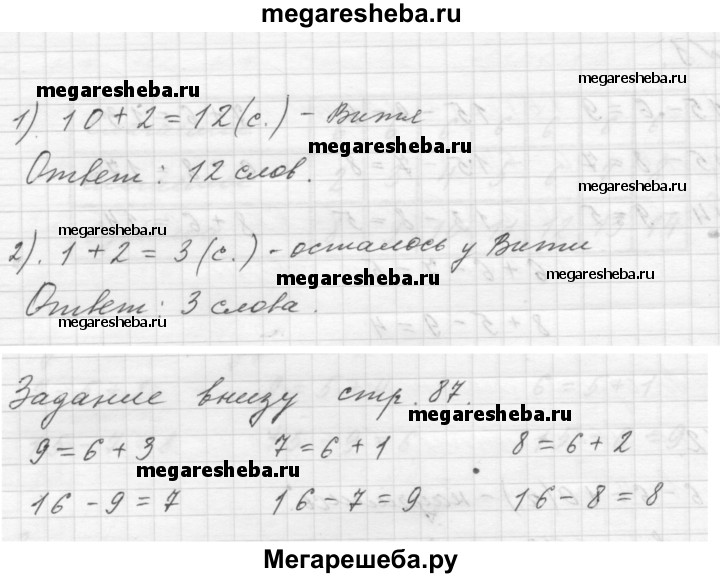 megaresheba.ru
megaresheba.ru
megaresheba.ru
1). 10 + 2 = 12 (с.) - Витя
megaresheba.ru
Ответ: 12 слов.
megaresheba.ru
megaresheba.ru
2). 1 + 2 = 3 (с.) - осталось у Вити
megaresheba.ru
megaresheba.ru
Ответ: 3 слова.
megaresheba.ru
Задание внизу стр. 87.
megaresheba.ru
9 = 6 + 3 7 = 6 + 1 8 = 6 + 2
megaresheba.ru
16 - 9 = 7 16 - 7 = 9 16 - 8 = 8
Мегарешеба.ру